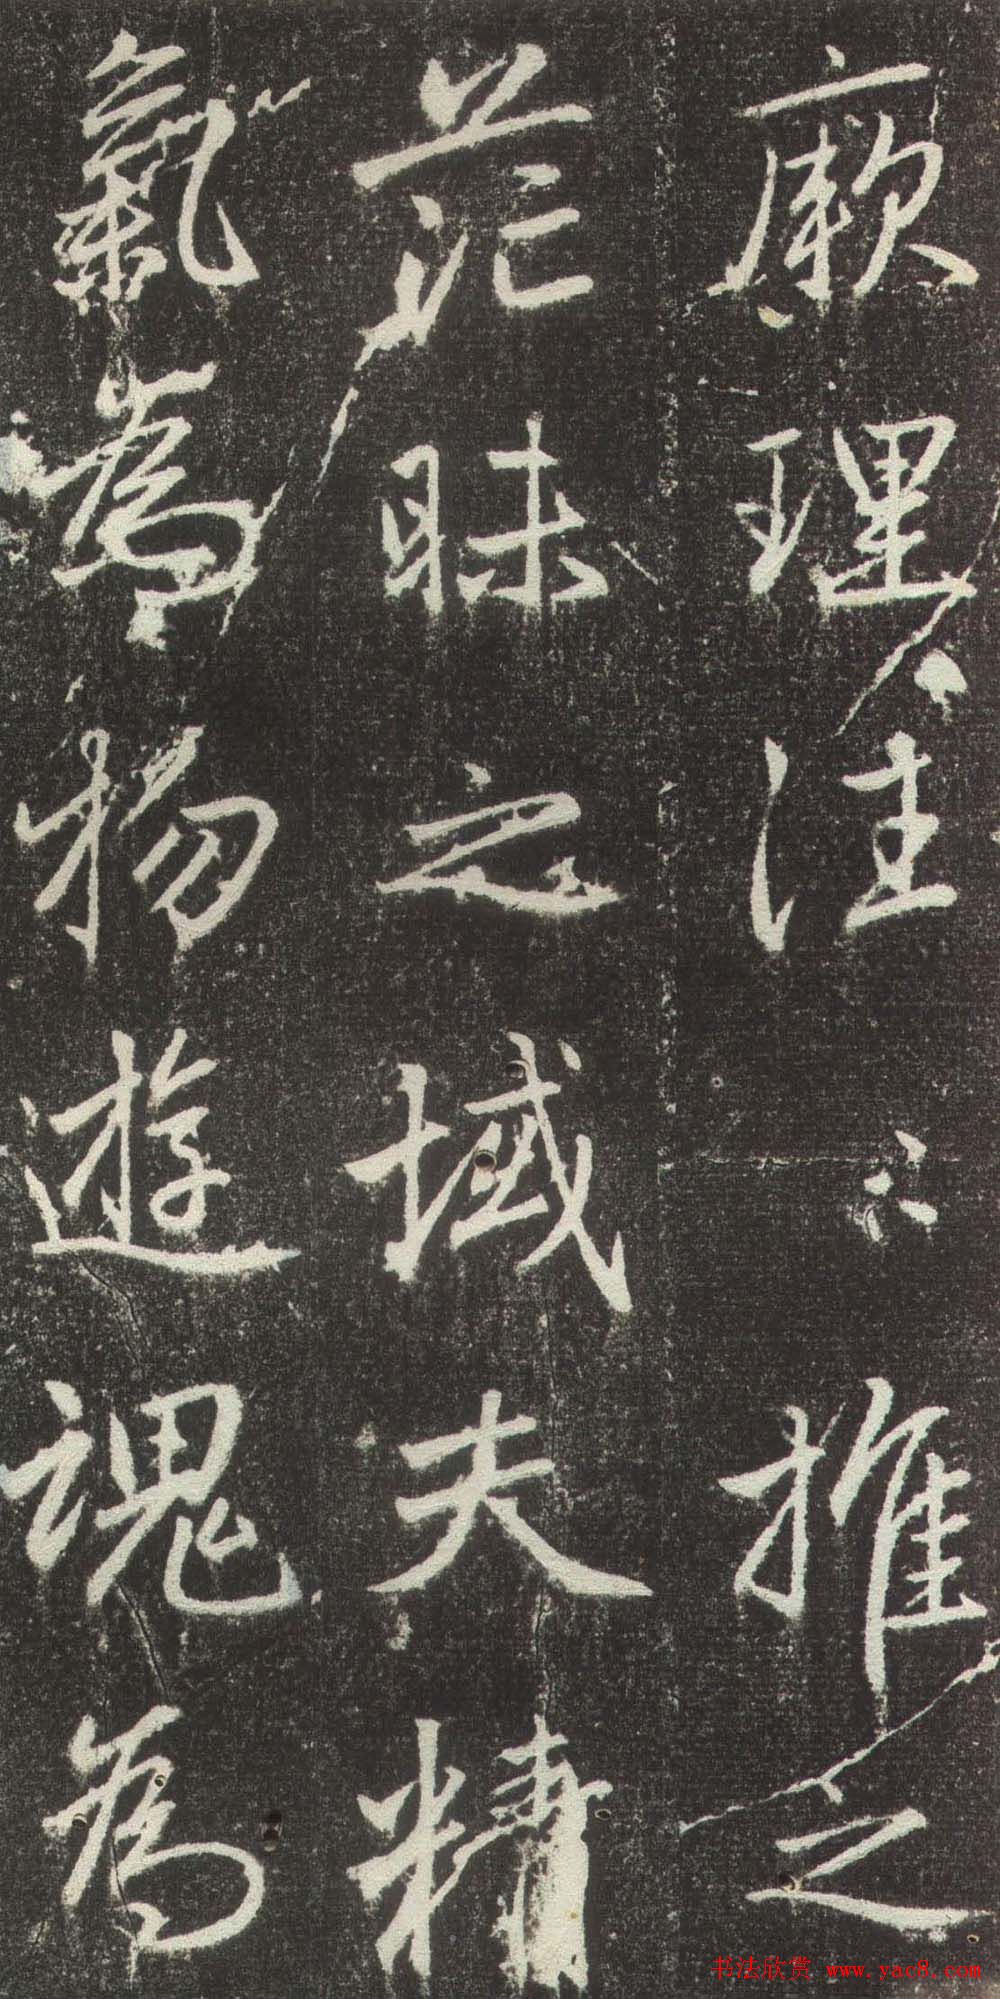 厥理往〻推之
茫昧之域夫精
氣為物遊魂為
书法欣赏 www.yac8.com